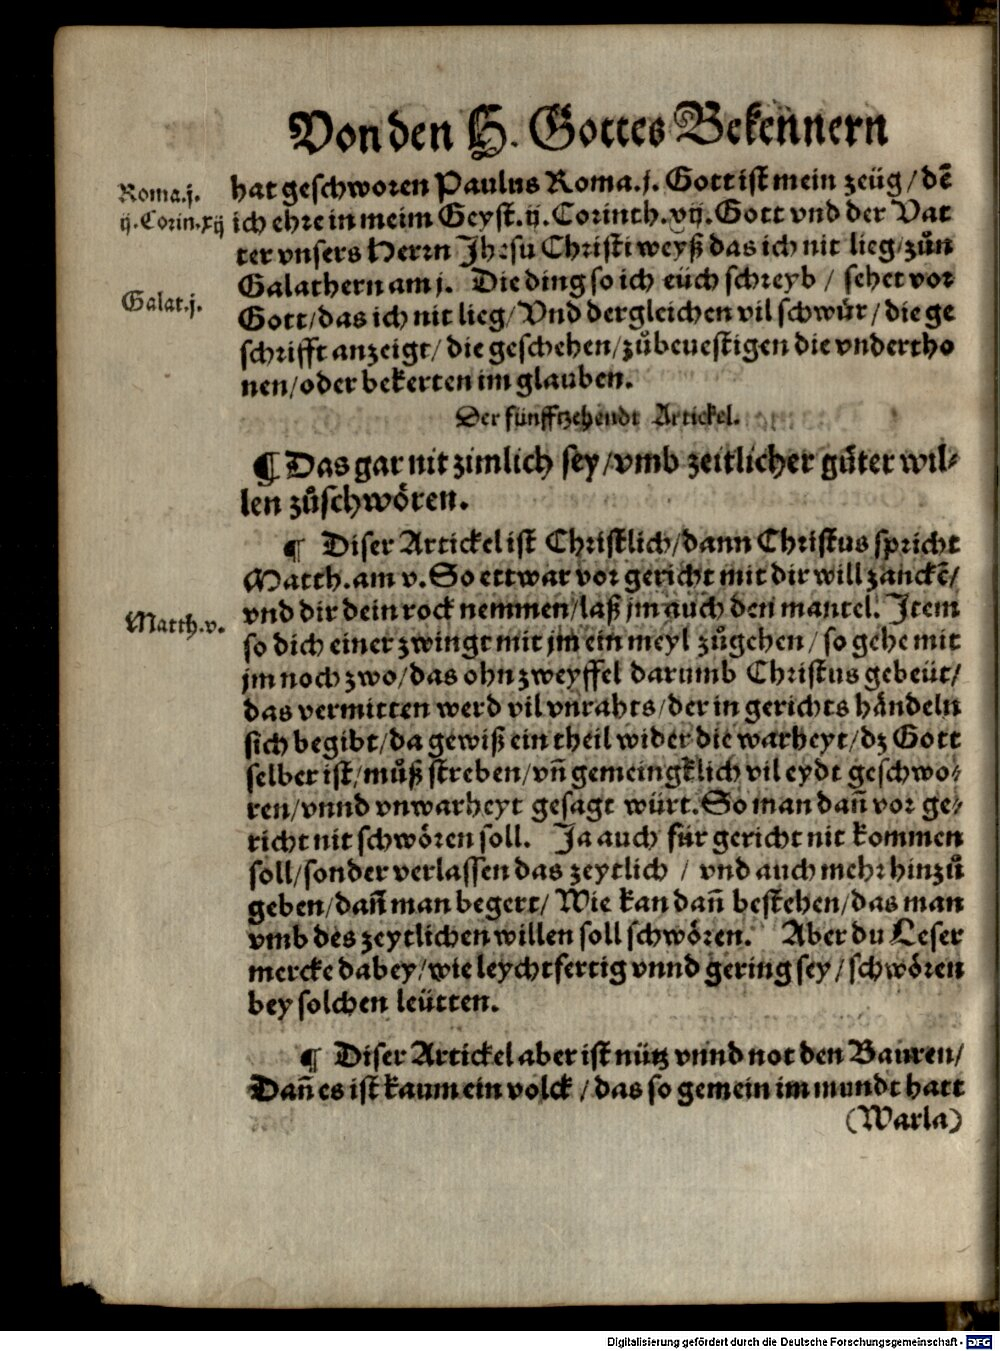 Von den H. Gottes Bekennern
Roma.j.
ij.Corin.xij
Galat.j.
Matth.v.
hat geschworen Paulus Roma.j. Gott ist mein zeüg/dẽ
ich ehre in meim Geyst.ij.Corinth.xij.Gott vnd der Vat
ter vnsers Herrn Jhesu Christi weyß das ich nit lieg/zůn
Galathern am j. Die ding so ich eüch schreyb / sehet vor
Gott/das ich nit lieg/Vnd dergleichen vil schwůr/die ge
schrifft anzeigt/die geschehen/zůbeuestigen die vndertho
nen/oder bekerten im glauben.
Der fünfftzehendt Artickel.
¶ Das gar nit zimlich sey/vmb zeitlicher gůter wil-
len zůschwören.
¶ Diser Artickel ist Christlich/dann Christus spricht
Matth.am v.So ettwar vor gericht mit dir will zanckẽ/
vnd dir dein rock nemmen/laß jm auch den mantel. Item
so dich einer zwingt mit jm ein meyl zůgehen/so gehe mit
jm noch zwo/das ohn zweyffel darumb Christus gebeüt/
das vermitten werd vil vnrahts/der in gerichts händeln
sich begibt/da gewiß ein theil wider die warheyt/dz Gott
selber ist/můß streben/vñ gemeingklich vil eydt geschwo-
ren/vnnd vnwarheyt gesagt würt.So man dañ vor ge-
richt nit schwören soll. Ja auch für gericht nit kommen
soll/sonder verlassen das zeytlich / vnd auch mehr hinzů
geben/dañ man begert/Wie kan dañ bestehen/das man
vmb des zeytlichen willen soll schwören. Aber du Leser
mercke dabey/wie leychtfertig vnnd gering sey/schwören
bey solchen leütten.
¶ Diser Artickel aber ist nütz vnnd not den Bauren/
Dañ es ist kaum ein volck/das so gemein im mundt hatt
(Warla)
Digitalisierung gefördert durch die Deutsche Forschungsgemeinschaft - DFG